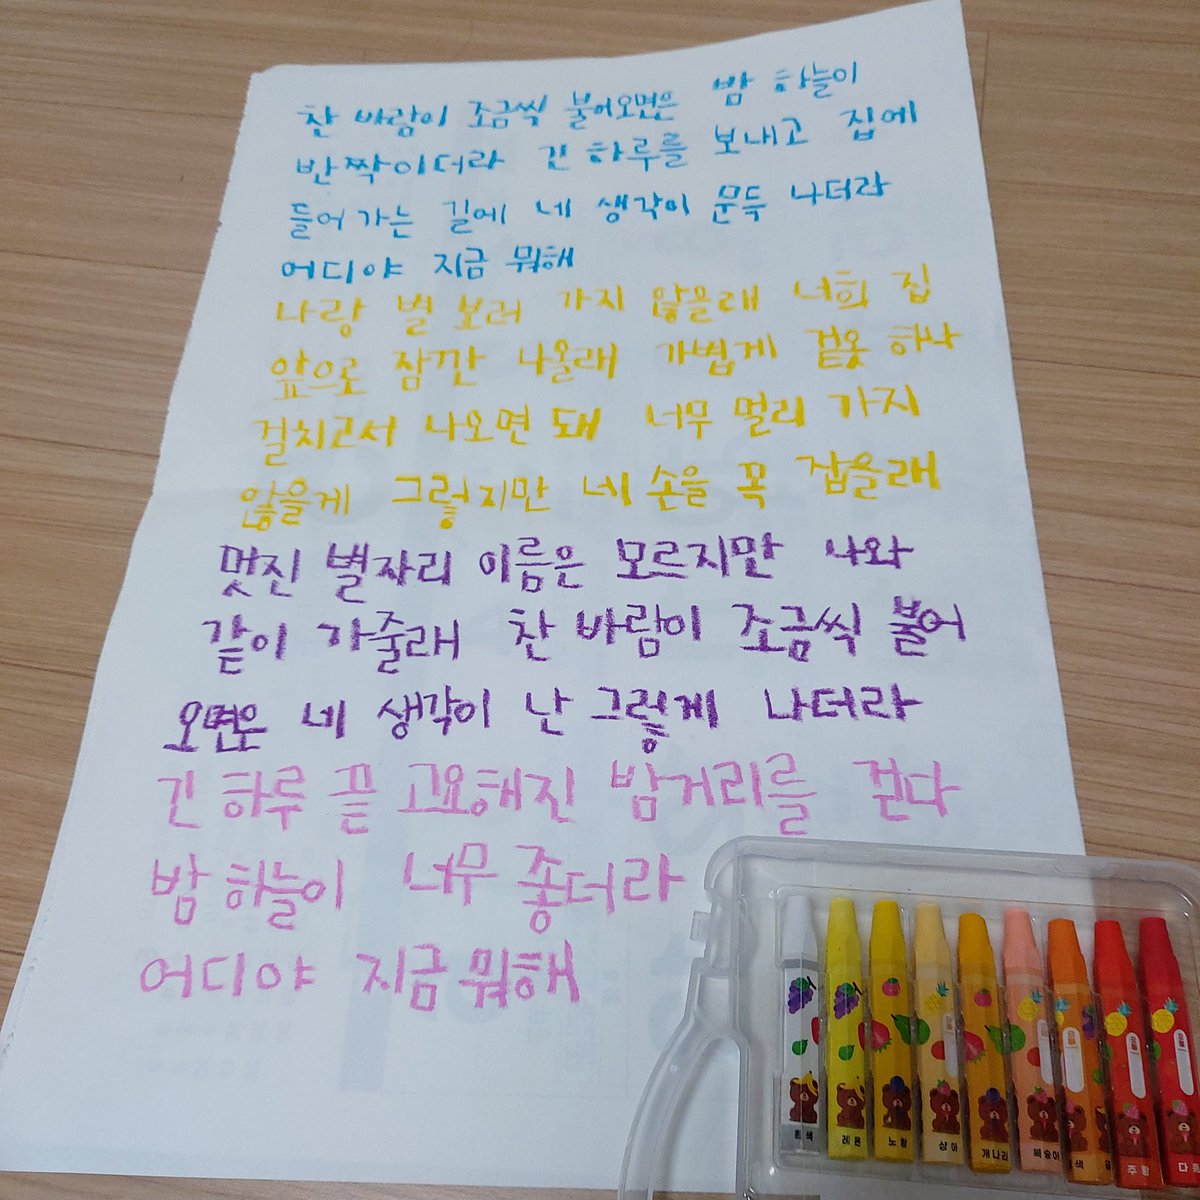 찬 바람이 조금씩 불어오면은 밤 하늘이
반짝이더라 긴 하루를 보내고 집에
들어가는 길에 네 생각이 문득 나더라
어디야 지금 뭐해
나랑 별 보러 가지 않을래 너희 집
앞으로 잠깐 나올래 가볍게 겉옷 하나
걸치고서 나오면 돼 너무 멀리 가지
않을게 그렇지만 네 손을 꼭 잡을래
멋진 별자리 이름은 모르지만 나와
같이 가줄래 찬 바람이 조금씩 불어
오면은 네 생각이 난 그렇게 나더라
긴 하루 끝 고요해진 밤거리를 걷다
밤 하늘이 너무 좋더라
어디야 지금 뭐해
흰색 레몬 노랑 상아 개나리 복숭아 주황